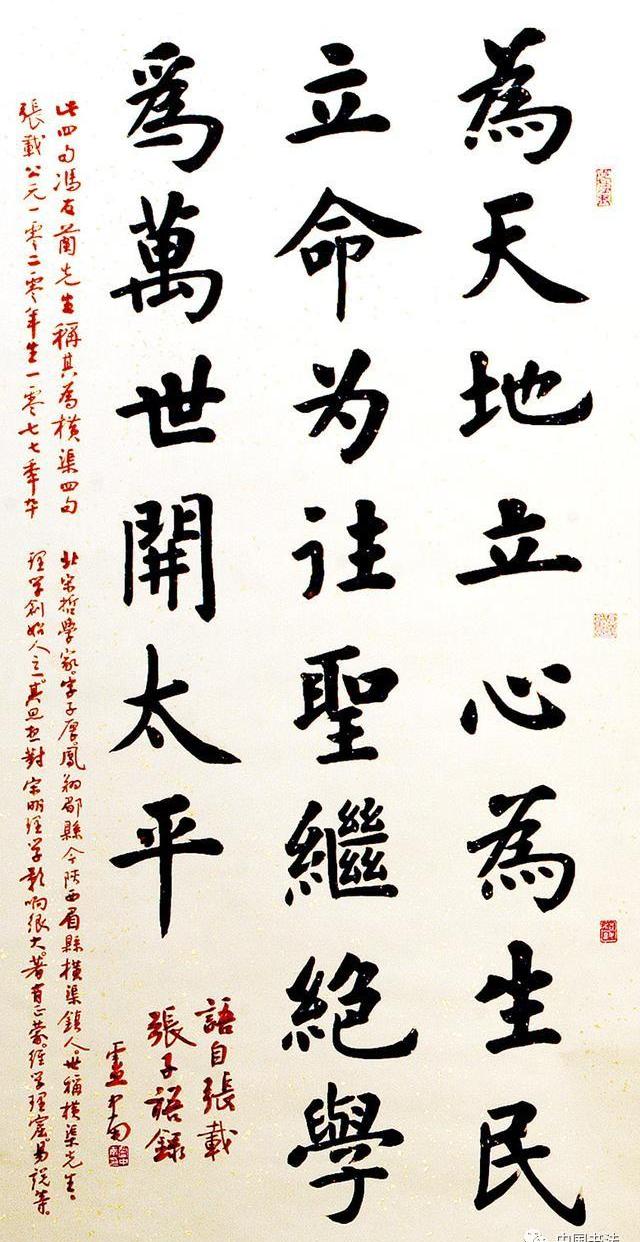 為天地立心為生民
立命为往聖繼絕學
爲萬世開太平
語自張載
張子語錄
盧中南
此四句馮友蘭先生稱其為橫渠四句
張載公元一零二零年生一零七七年卒
北宋哲學家字子厚鳳翔郿縣今陝西眉縣橫渠鎮人。世稱橫渠先生。
理學創始人之一。其思想對宋明理學影响很大。著有正蒙。經學理窟易說等。
中国书法